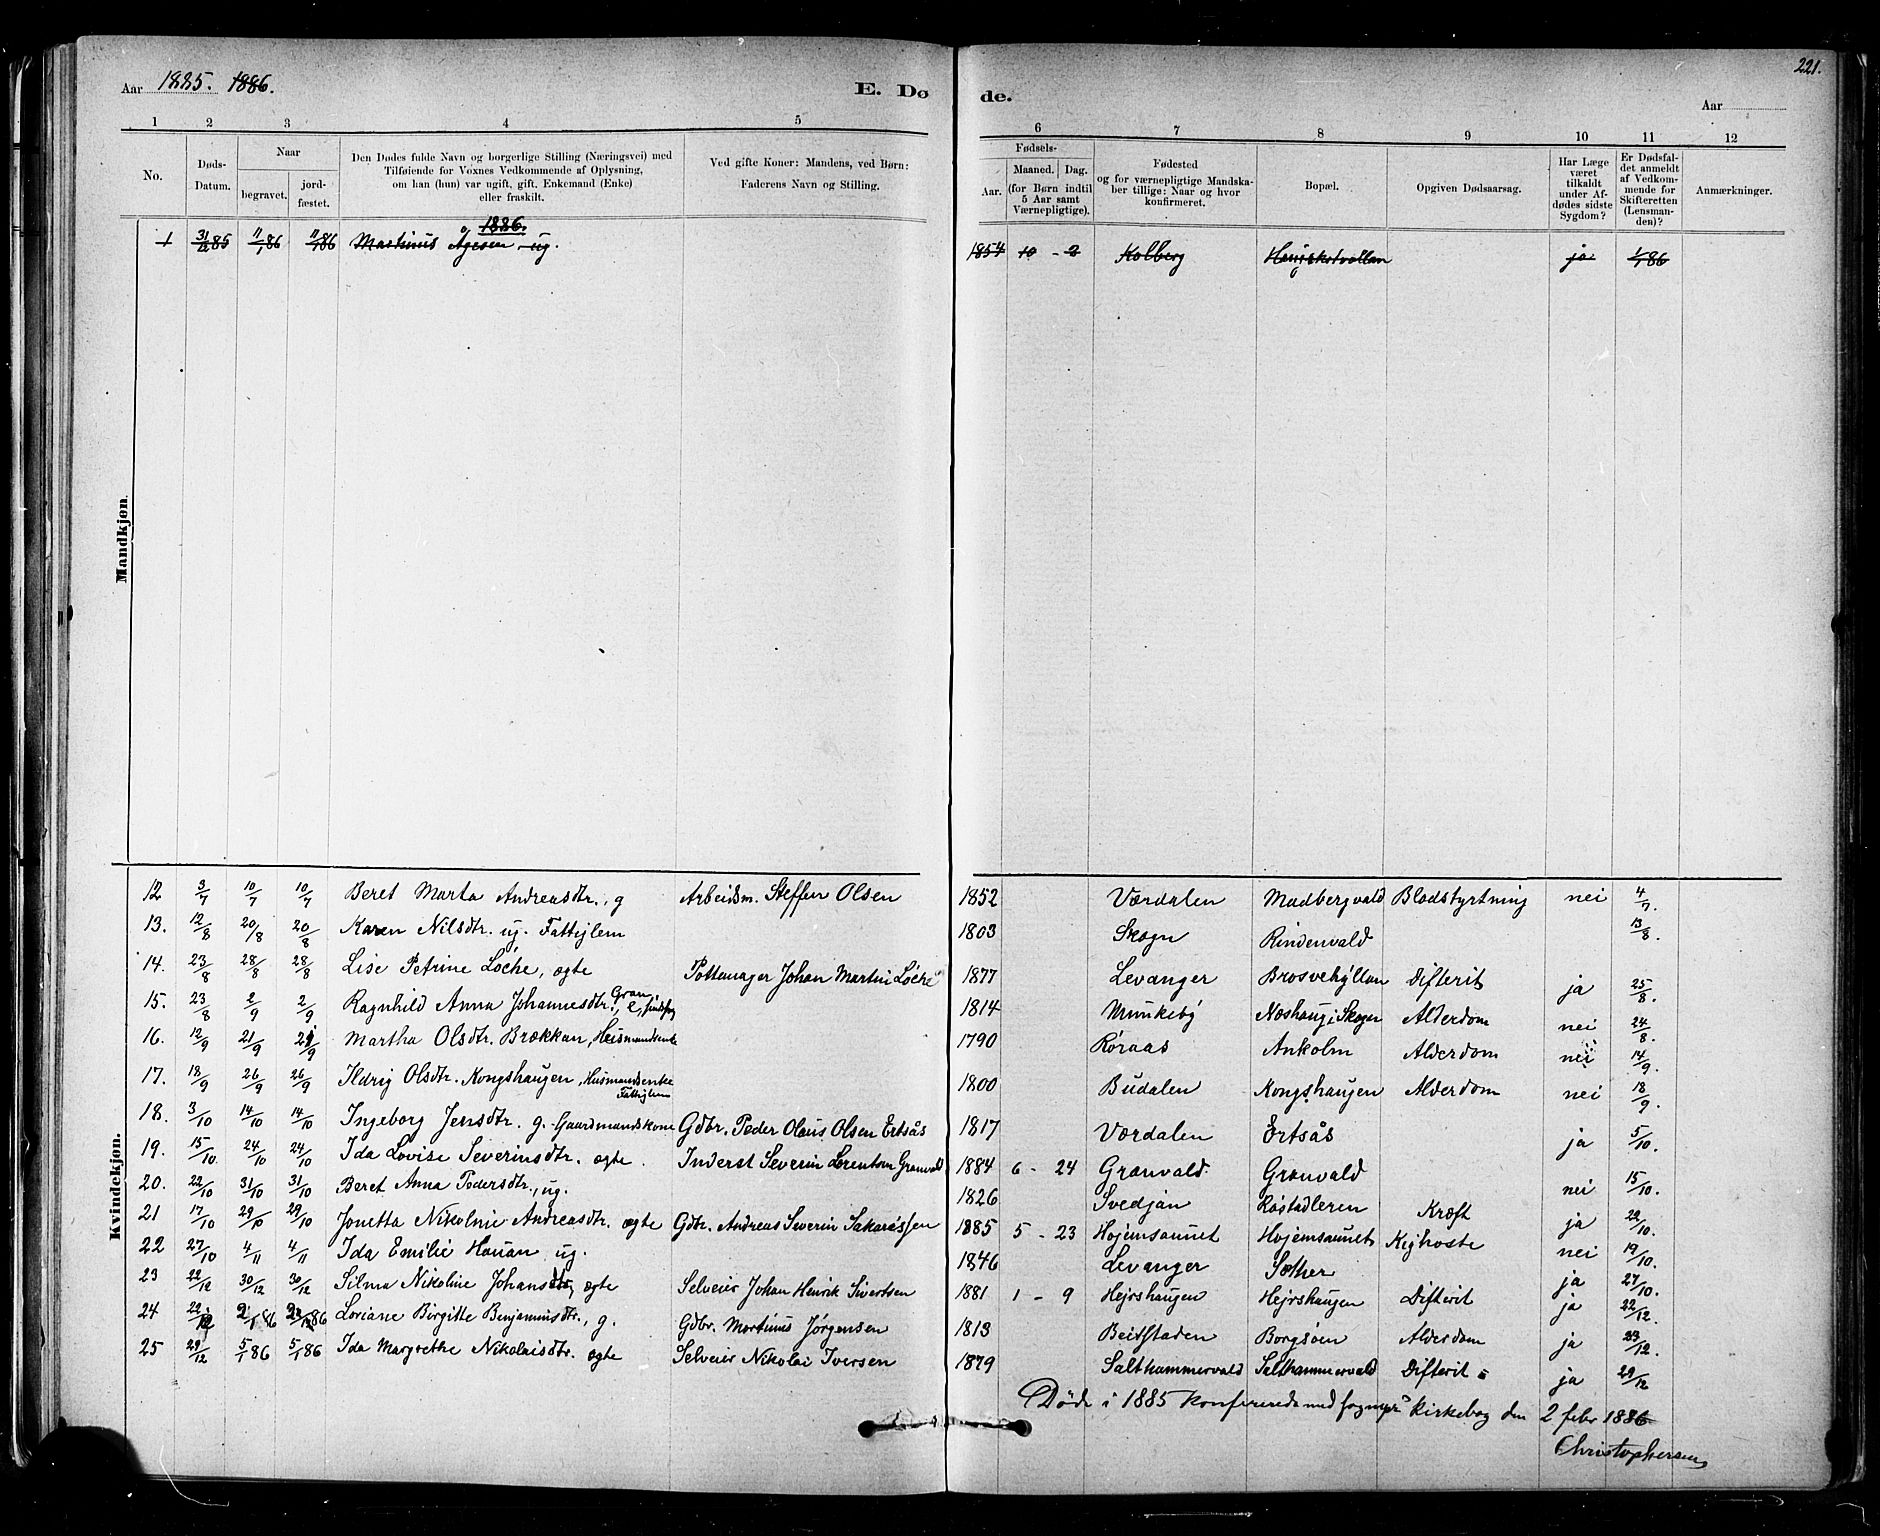 Aar 1885. 1886.
E. Dø
de.
221.
Aar
1 2 3 4 5 6 7 8 9 10 11 12
No.
Døds-Datum.
Naar
begravet.
jord-fæstet.
Den Dødes fulde Navn og borgerlige Stilling (Næringsvei) med
Tilføiende for Voxnes Vedkommende af Oplysning,
om han (hun) var ugift, gift, Enkemand (Enke)
eller fraskilt.
Ved gifte Koner: Mandens, ved Børn:
Faderens Navn og Stilling.
Fødsels-
Aar.
Maaned. Dag.
(for Børn indtil
5 Aar samt
Værnepligtige).
Fødested
og for værnepligtige Mandska-
ber tillige: Naar og hvor
konfirmeret.
Bopæl.
Opgiven Dødsaarsag.
Har Læge
været
tilkaldt
under Af-
dødes sidste
Sygdom?
Er Dødsfal-
det anmeldt
af Vedkom-
mende for
Skifteretten
(Lensman-
den)?
Anmærkninger.
Mandkjøn.
1886.
1 31/12 85 11/1 86 11/1 86 Martinus Agesen ug. 1854 10 - 2 Kolberg ja 1/1 86
Kvindekjøn.
12 3/7 10/7 10/7 Beret Marta Andreasdtr., g Arbeidsm. Steffen Olsen 1852 Værdalen Madbergvald Blodstyrtning nei 4/7.
13. 12/8 20/8 20/8 Karen Nilsdtr. ug. Fattiglem 1803 Skogn Rindenvald 13/8.
14. 23/8 28/8 28/8 Lise Petrine Löche, ægte Pottemager Johan Martin Löche 1877 Levanger Brosvehyllan Difterit ja 25/8.
15. 23/8 2/9 2/9 Ragnhild Anna Johannesdtr. Gran, e, 1814 Munkeby Næshaug i Skogn Alderdom nei 24/8.
16. 12/9 21/9 21/9 Martha Olsdtr. Brækkan, Husmandsenke 1790 Røraas Ankolm Alderdom nei 14/9.
17. 18/9 26/9 26/9 Ildrig Olsdtr. Kongshaugen, Husmandsenke Fattiglem 1800 Budalen Kongshaugen Alderdom nei 18/9.
18. 3/10 14/10 14/10 Ingeborg Jensdtr. g. Gaardmandskone Gdbr. Peder Olaus Olsen Ertsås 1817 Værdalen Ertsås ja 5/10.
19. 15/10. 24/10 24/10 Ida Lovise Severinsdtr. ægte. Inderst Severin Lorentsen Grønvald 1884 6 - 24 Grønvald. Grønvald nei 15/10.
20. 22/10 31/10 31/10 Beret Anna Pedersdtr., ug. 1826 Svedjan Røstadleren Kræft ja 22/10.
21 17/10 29/10 29/10 Jonetta Nikoline Andreasdtr. ægte Gdbr. Andreas Severin Sakariassen 1885 5 - 23 Hojemsaunet Hojemsaunet Kighoste nei 19/10.
22 27/10 4/11 4/11 Ida Emilie Hauan ug. 1846 Levanger Sæther ja 27/10.
23 22/12 30/12 30/12 Silma Nikoline Johansdtr, ægte Selveier Johan Henrik Sivertsen 1881 1 - 9 Hejrshaugen Hejrshaugen Difterit ja 22/12.
24 22/12 2/1 86 2/1 86 Loriane Birgitte Benjaminsdtr., g. Gdbr. Martinus Jørgensen 1813 Beitstaden Borgsöen Alderdom ja 23/12.
25 29/12 5/1 86 5/1 86 Ida Margrethe Nikolaisdtr. ægte Selveier Nikolai Iversen 1879 Salthammervald Salthammervald Difterit ja 29/12
Døde i 1885 konfererede med sognepr. kirkebog den 2 febr 1886
Christophersen